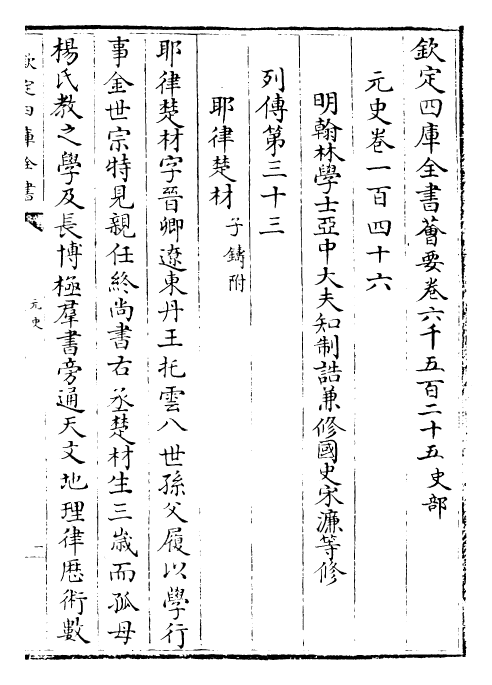 欽定四庫全書薈要卷六千五百二十五 史部
元史卷一百四十六
明翰林學士亞中大夫知制誥兼修國史宋濂等修
列傳第三十三
耶律楚材 子鑄附
耶律楚材字晉卿遼東丹王托雲八世孫父履以學行
事金世宗特見親任終尚書右丞楚材生三歲而孤母
楊氏教之學及長博極羣書旁通天文地理律厯術數
欽定四庫全書
元史
一